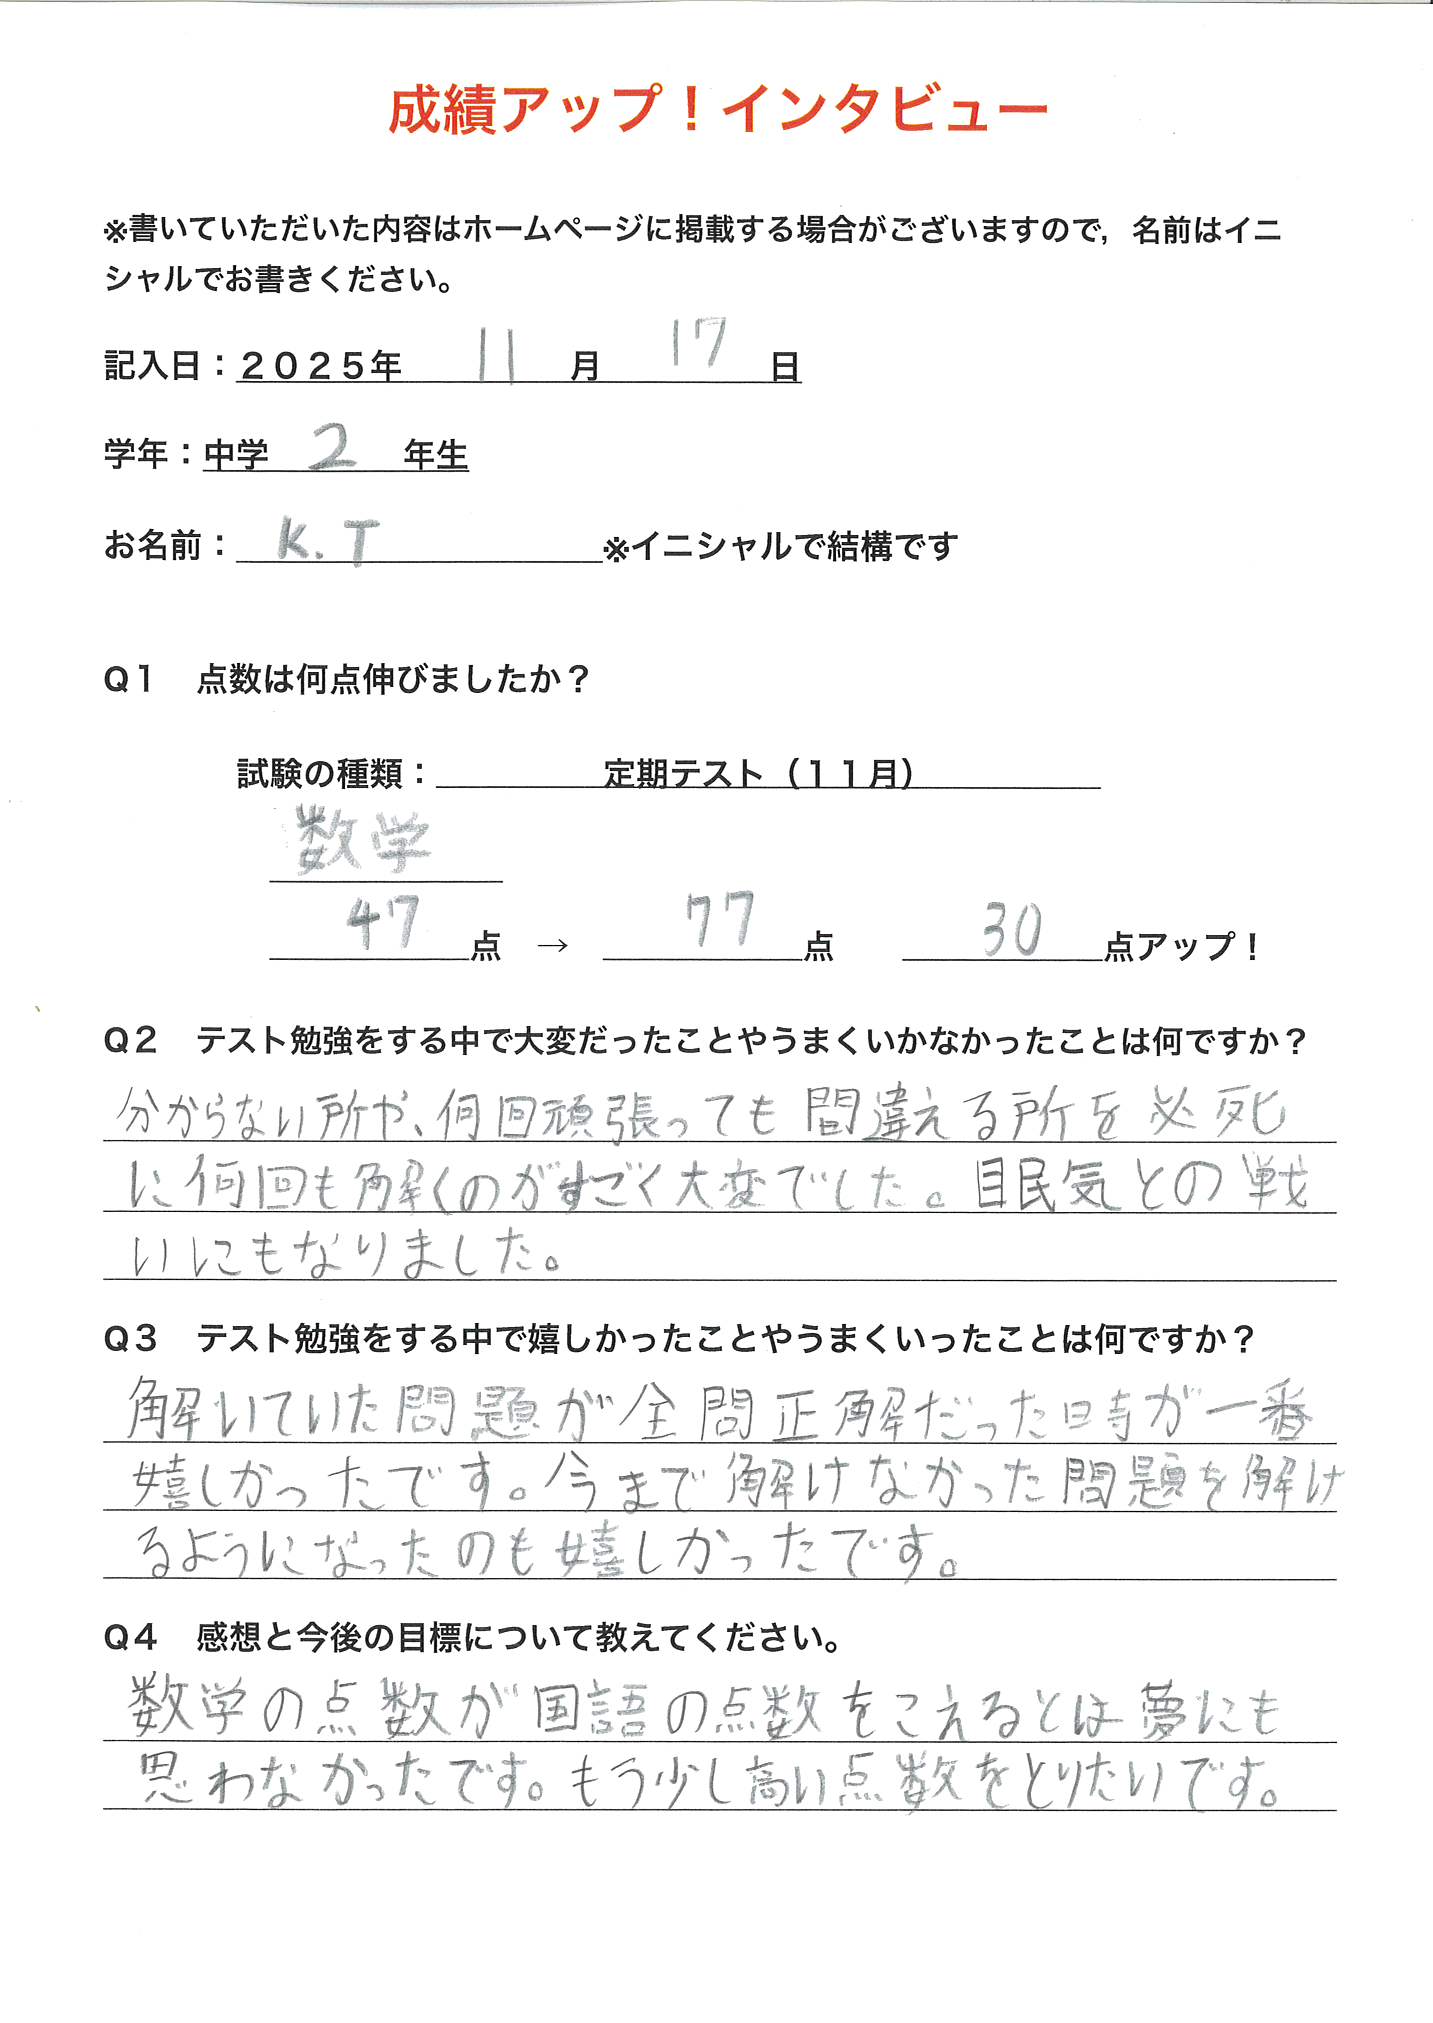 成績アップ！インタビュー
※書いていただいた内容はホームページに掲載する場合がございますので，名前はイニ
シャルでお書きください。
記入日：２０２５年 11 月 17 日
学年：中学 2 年生
お名前： K.T ※イニシャルで結構です
Q１ 点数は何点伸びましたか？
試験の種類： 定期テスト（１１月）
数学
47 点 → 77 点 30 点アップ！
Q２ テスト勉強をする中で大変だったことやうまくいかなかったことは何ですか？
分からない所や、何回頑張っても間違える所を必死
に何回も解くのがすごく大変でした。眠気との戦
いにもなりました。
Q３ テスト勉強をする中で嬉しかったことやうまくいったことは何ですか？
解いていた問題が全問正解だった時が一番
嬉しかったです。今まで解けなかった問題を解け
るようになったのも嬉しかったです。
Q４ 感想と今後の目標について教えてください。
数学の点数が国語の点数をこえるとは夢にも
思わなかったです。もう少し高い点数をとりたいです。